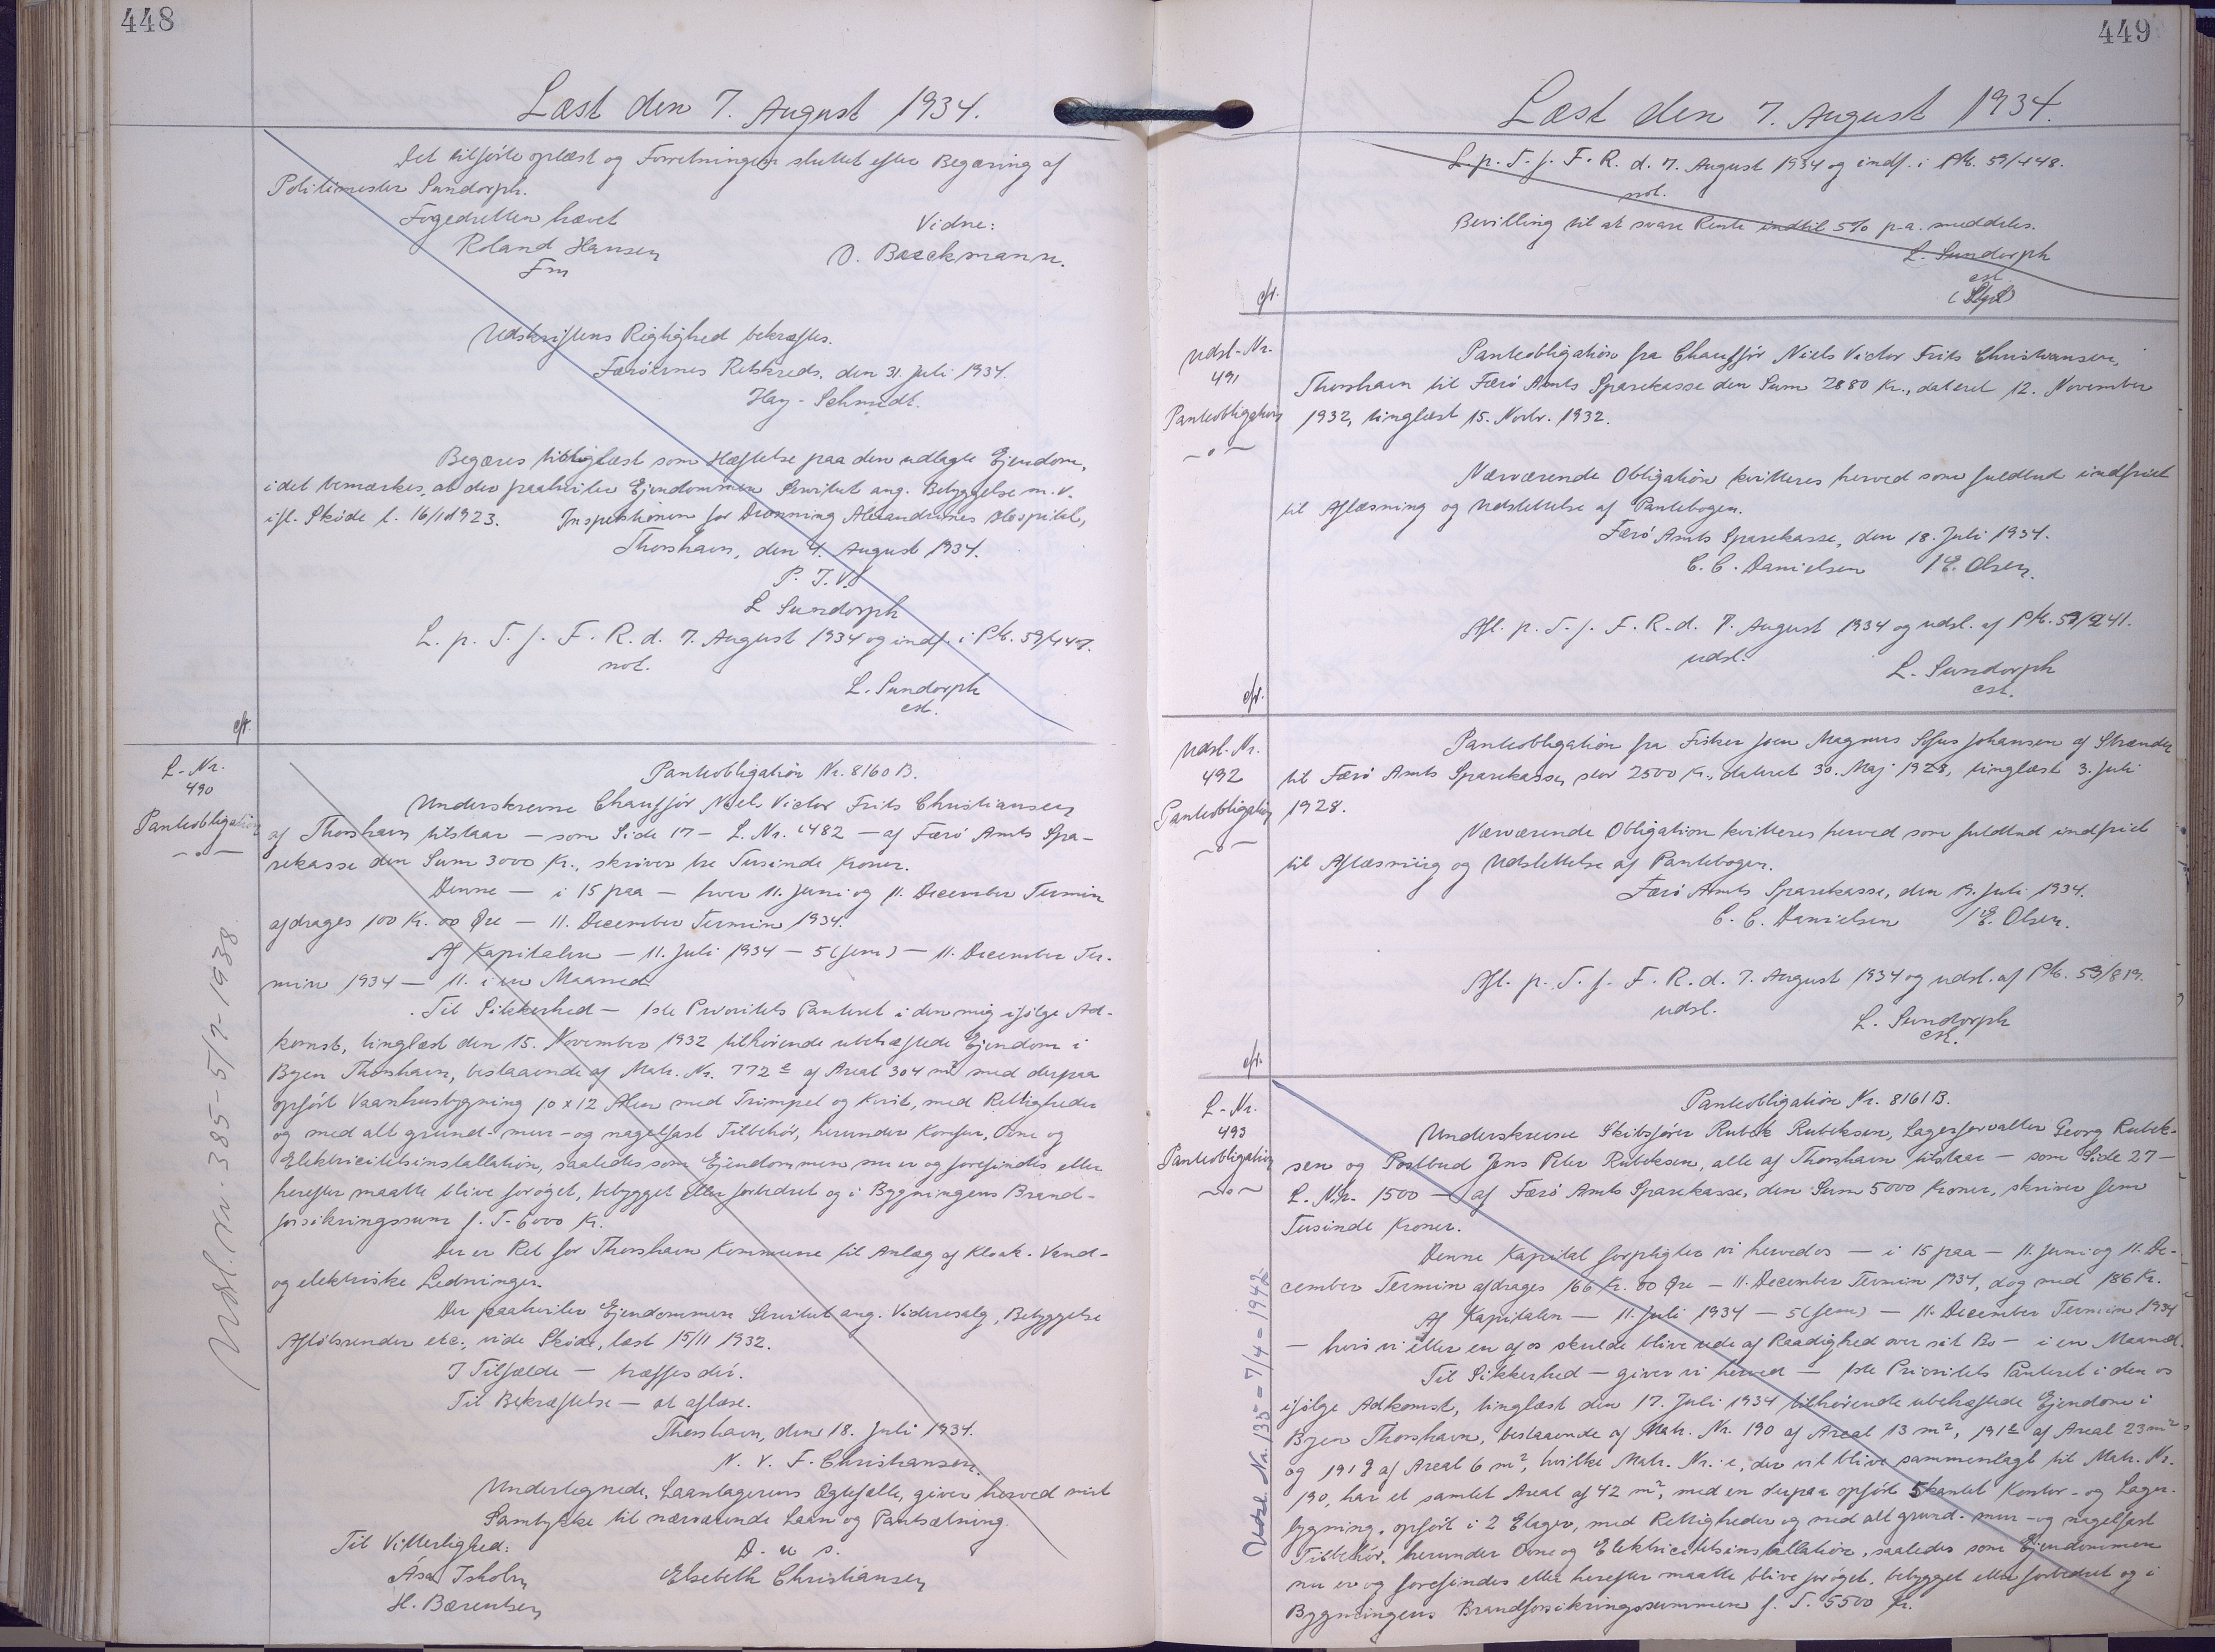 448
Læst den 7. August 1934.
Det tilførte oplæst og Forretningen sluttet efter Begæring af
Politimester Sundorph.
Fogedretten hævet
Vidne:
Roland Hansen
O. Baeckmann.
Fm
Udskriftens Rigtighed bekræftes.
Færöernes Retskreds, den 31. Juli 1934.
Hay-Schmidt.
Begæres tinglæst som Hæftelse paa den udlagte Ejendom,
idet bemærkes, at der paahviler Ejendommen Servitut ang. Bebyggelse m. v.
ifl. Sköde l. 16/1 1923. Inspektionen for Dronning Alexandrines Hospital,
Thorshavn, den 4. August 1934.
P. I. V.
L Sundorph
L. p. T. f. F. R. d. 7. August 1934 og indf. i Pb. 59/447.
not.
L. Sundorph
cst.
cfr.
L-Nr.
490
Panteobligation
Panteobligation Nr. 8160 B.
Underskrevne Chauffør Niels Victor Frits Christiansen
af Thorshavn tilstaar — som Side 17 — L. Nr. 1482 — af Færö Amts Spa-
rekasse den Sum 3000 Kr., skriver tre Tusinde Kroner.
Denne — i 15 paa — hver 11. Juni og 11. December Termin
afdrages 100 Kr. 00 Øre — 11. December Termin 1934.
Af Kapitalen — 11. Juli 1934 — 5 (fem) — 11. December Ter-
min 1934 — 11. i en Maaned
Til Sikkerhed — 1ste Prioritets Panteret i den mig ifölge Ad-
komst, tinglæst den 15. November 1932 tilhörende ubehæftede Ejendom i
Byen Thorshavn, bestaaende af Matr. Nr. 772 e af Areal 304 m² med derpaa
opfört Vaanhusbygning 10 x 12 Alen med Trimpel og Kvist, med Rettigheder
og med alt grund- mur- og nagelfast Tilbehör, herunder Komfur, Ovne og
Elektricitetsinstallation, saaledes som Ejendommen nu er og forefindes eller
herefter maatte blive foröget, bebygget eller forbedret og i Bygningens Brand-
forsikringssum f. T. 6000 Kr.
Der er Ret for Thorshavn Kommune til Anlæg af Kloak- Vand-
og elektriske Ledninger.
Der paahviler Ejendommen Servitut ang. Videresalg, Bebyggelse
Aflöbsrender etc., vide Sköde, læst 15/11 1932.
I Tilfælde — træffes dér.
Til Bekræftelse — at aflæse.
Thorshavn, den 18. Juli 1934.
N. V. F. Christiansen.
Undertegnede, Laantagerens Ægtefælle, giver herved mit
Samtykke til nærværende Laan og Pantsætning.
Til Vitterlighed:
D. u s.
Elsebeth Christiansen
H. Bærentsen
Udsl. Nr. 385 - 5/7 - 1938.
449
Læst den 7. August 1934.
L. p. T. f. F. R. d. 7. August 1934 og indf. i Pb. 59/448.
not.
Bevilling til at svare Rente indtil 5% p.a. meddeles.
L. Sundorph
cst
cfr.
Udsl-Nr.
491
Panteobligation
Panteobligation fra Chauffør Niels Victor Frits Christiansen,
Thorshavn til Færö Amts Sparekasse den Sum 2880 Kr., dateret 12. November
1932, tinglæst 15. Novbr. 1932.
Nærværende Obligation kvitteres herved som fuldtud indfriet
til Aflæsning og Udslettelse af Pantebogen.
Færö Amts Sparekasse, den 18. Juli 1934.
C. C. Danielsen /E. Olsen.
Afl. p. T. f. F. R. d. 7. August 1934 og udsl. af Pb. 59/241.
udsl.
L. Sundorph
cst.
cfr.
Udsl. Nr.
492
Panteobligation
Panteobligation fra Fisker Joen Magnus Sofus Johansen af Strænder
til Færö Amts Sparekasse, stor 2500 Kr., dateret 30. Maj 1928, tinglæst 3. Juli
1928.
Nærværende Obligation kvitteres herved som fuldtud indfriet
til Aflæsning og Udslettelse af Pantebogen.
Færö Amts Sparekasse, den 19. Juli 1934.
C. C. Danielsen /E. Olsen.
Afl. p. T. f. F. R. d. 7. August 1934 og udsl. af Pb. 53/819.
udsl.
L. Sundorph
cst.
cfr.
L-Nr.
493
Panteobligation
Panteobligation Nr. 8161 B.
Underskrevne Skibsfører Rubek Rubeksen, Lagerforvalter Georg Rubek-
sen og Postbud Jens Peter Rubeksen, alle af Thorshavn tilstaar — som Side 27 —
L. Nr. 1500 — af Færö Amts Sparekasse, den Sum 5000 Kroner, skriver fem
Tusinde Kroner.
Denne Kapital forpligter vi herved os — i 15 paa — 11. Juni og 11. De-
cember Termin afdrages 166 Kr. 00 Øre — 11. December Termin 1934, dog med 186 Kr.
Af Kapitalen — 11. Juli 1934 — 5 (fem) — 11. December Termin 1934
— hvis vi eller en af os skulde blive ude af Raadighed over sit Bo — i en Maaned.
Til Sikkerhed — giver vi herved — 1ste Prioritets Panteret i den os
ifölge Adkomst, tinglæst den 17. Juli 1934 tilhörende ubehæftede Ejendom i
Byen Thorshavn, bestaaende af Matr. Nr. 190 af Areal 13 m², 191 e af Areal 23 m²
og 191 g af Areal 6 m², hvilke Matr. Nr. e, der vil blive sammenlagt til Matr. Nr.
190, har et samlet Areal af 42 m², med en derpaa opfört 5kantet Kontor- og Lager-
bygning, opfört i 2 Etager, med Rettigheder og med alt grund- mur- og nagelfast
Tilbehör, herunder Ovne og Elektricitetsinstallation, saaledes som Ejendommen
nu er og forefindes eller herefter maatte blive foröget, bebygget eller forbedret og i
Bygningens Brandforsikringssummen f. T. 5500 Kr.
Udsl. Nr. 135 - 7/4 - 1942